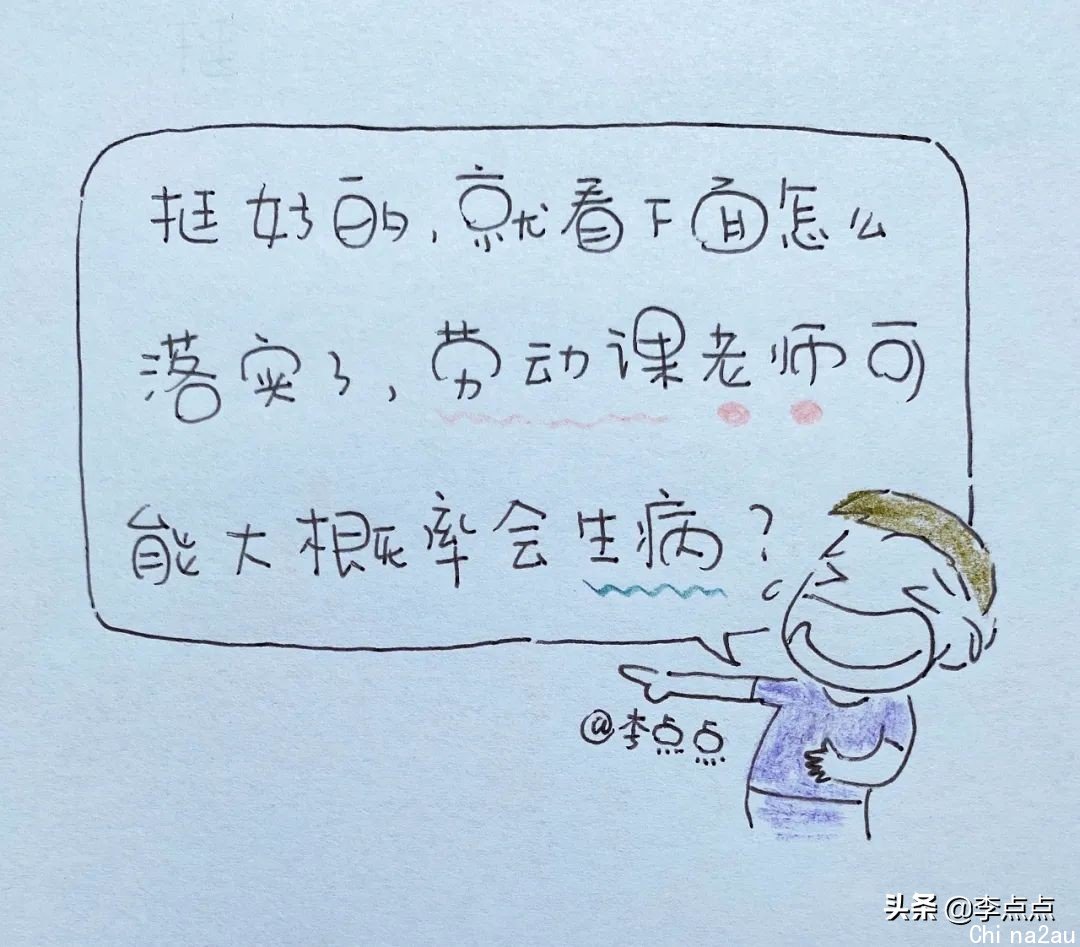 挺好的,就看下面怎么
落实了,劳动课老师可
能大概率会生病?
@李点点
头条 @李点点
Chi na2au